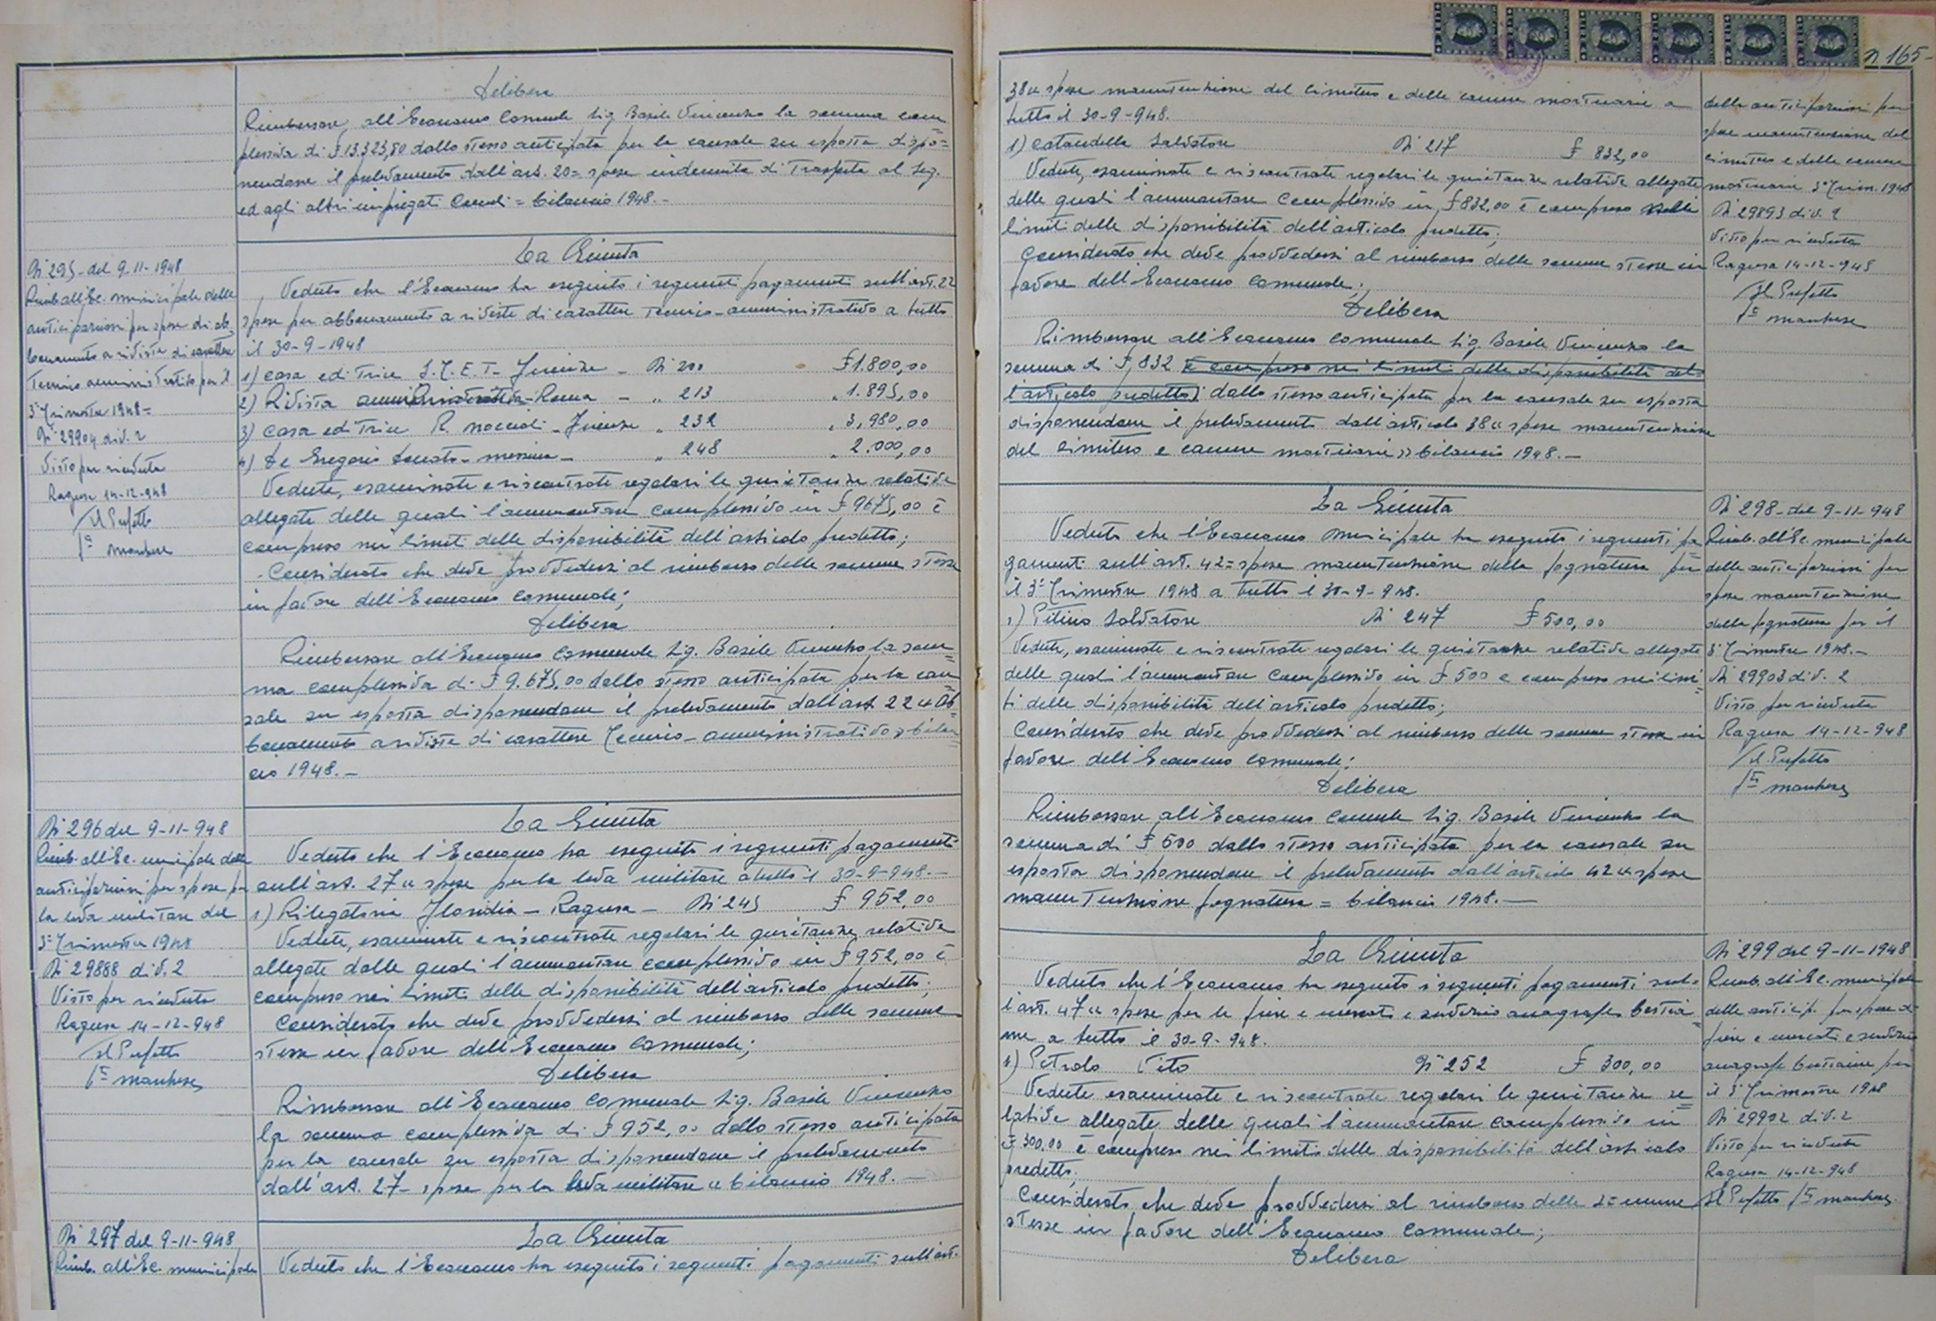 Delibera
Rimborsare all'Economo Comunale Sig. Basile Vincenzo la somma com=
plessiva di £ 13.323,80 dallo stesso anticipata per la causale su esposta dispo=
nendone il prelevamento dall'art. 20= spese indennità di trasferta al Seg.
ed agli altri impiegati Comunali = bilancio 1948.-
N° 295 - del 9-11-1948
Rimb. all'Ec. municipale delle
anticipazioni per spese di ab=
bonamento a riviste di carattere
Tecnico amministrativo per il
3° Trimestre 1948=
N° 29904 div. 2
Visto per ricevuta
Ragusa 14-12-948
Il Prefetto
La Giunta
Veduto che l'Economo ha eseguito i seguenti pagamenti sull'art. 22
spese per abbonamento a riviste di carattere Tecnico-amministrativo a tutto
il 30-9-1948
1) Casa editrice S.T.E.T. Firenze - N° 200 £ 1.800,00
2) Rivista amministrativa-Roma - " 213 " 1.895,00
3) Casa editrice R. noccioli - Firenze " 232 " 3,980,00
4) De Gregorio - messina - " 248 " 2.000,00
Vedute, esaminate e riscontrate regolari le quietanze relative
allegate delle quali l'ammontare complessivo in £ 9675,00 è
compreso nei limiti delle disponibilità dell'articolo predetto;
- Considerato che deve provvedersi al rimborso delle somme stesse
in favore dell'Economo Comunale;
Delibera
Rimborsare all'Economo Comunale Sig. Basile Vincenzo la som=
ma complessiva di £ 9.675,00 dallo stesso anticipata per la cau
sale su esposta disponendone il prelevamento dall'art 22 « Ab=
bonamento a riviste di carattere Tecnico-amministrativo » bilan=
cio 1948.-
N° 296 del 9-11-948
Rimb. all'Ec. municipale delle
anticipazioni per spese per
la leva militare del
3° Trimestre 1948
N° 29888 div. 2
Visto per ricevuta
Ragusa 14-12-948
Il Prefetto
La Giunta
Veduto che l'Economo ha eseguito i seguenti pagamenti
sull'art. 27 « spese per la leva militare a tutto il 30-9-948.-
1) Rilegatoria Floridia - Ragusa - N° 245 £ 952,00
Vedute, esaminate e riscontrate regolari le quietanze relative
allegate dalle quali l'ammontare complessivo in £ 952,00 è
compreso nei limiti delle disponibilità dell'articolo predetto;
Considerato che deve provvedersi al rimborso delle somme
stesse in favore dell'Economo Comunale;
Delibera
Rimborsare all'Economo Comunale Sig. Basile Vincenzo
la somma complessiva di £ 952,00 dallo stesso anticipata
per la causale su esposta disponendone il prelevamento
dall'art. 27 - spese per la leva militare « bilancio 1948.-
N° 297 del 9-11-948
Rimb. all'Ec. municipale
La Giunta
Veduto che l'Economo ha eseguito i seguenti pagamenti sull'art.
n 165-
38 « spese manutenzione del Cimitero e delle camere mortuarie a
tutto il 30-9-948.
1) Cataudella Salvatore N° 217 £ 832,00
Vedute, esaminate e riscontrate regolari le quietanze relative allegate
delle quali l'ammontare complessivo in £ 832,00 è compreso nelli
limiti delle disponibilità dell'articolo predetto;
Considerato che deve provvedersi al rimborso delle somme stesse in
favore dell'Economo Comunale;
Delibera
Rimborsare all'Economo Comunale Sig. Basile Vincenzo la
somma di £ 832 è compreso nei limiti delle disponibilità del=
l'articolo predetto; dallo stesso anticipata per la causale su esposta
disponendone il prelevamento dall'articolo 38 « spese manutenzione
del Cimitero e camere mortuarie » bilancio 1948.-
delle anticipazioni per
spese manutenzione del
cimitero e delle camere
mortuarie 3° Trim. 1948
N° 29893 div. 2
Visto per ricevuta
Ragusa 14-12-948
Il Prefetto
La Giunta
Veduto che l'Economo municipale ha eseguito i seguenti pa
gamenti sull'art. 42 = spese manutenzione della fognatura per
il 3° Trimestre 1948 a tutto il 30-9-948.
1) Pitino Salvatore N° 247 £ 500,00
Vedute, esaminate e riscontrate regolari le quietanze relative allegate
delle quali l'ammontare complessivo in £ 500 è compreso nei limi=
ti delle disponibilità dell'articolo predetto;
Considerato che deve provvedersi al rimborso delle somme stesse in
favore dell'Economo Comunale;
Delibera
Rimborsare all'Economo Comunale Sig. Basile Vincenzo la
somma di £ 500 dallo stesso anticipata per la causale su
esposta disponendone il prelevamento dall'articolo 42 « spese
manutenzione fognatura = bilancio 1948.-
N° 298 - del 9-11-948
Rimb. all'Ec. municipale
delle anticipazioni per
spese manutenzione
della fognatura per il
3° Trimestre 1948.-
N° 29903 div. 2
Visto per ricevuta
Ragusa 14-12-948
Il Prefetto
La Giunta
Veduto che l'Economo ha eseguito i seguenti pagamenti sul=
l'art. 47 « spese per le fiere e mercati e servizio anagrafe bestia=
me a tutto il 30-9-948.
1) Petralo Vito N° 252 £ 300,00
Vedute esaminate e riscontrate regolari le quietanze re=
lative allegate delle quali l'ammontare complessivo in
£ 300,00 è compreso nei limiti delle disponibilità dell'articolo
predetto;
Considerato che deve provvedersi al rimborso delle somme
stesse in favore dell'Economo Comunale;
Delibera
N° 299 del 9-11-1948
Rimb. all'Ec. municipale
delle anticip. per spese di
fiere e mercati e servizio
anagrafe bestiame per
il 3° Trimestre 1948
N° 29902 div. 2
Visto per ricevuta
Ragusa 14-12-948
Il Prefetto